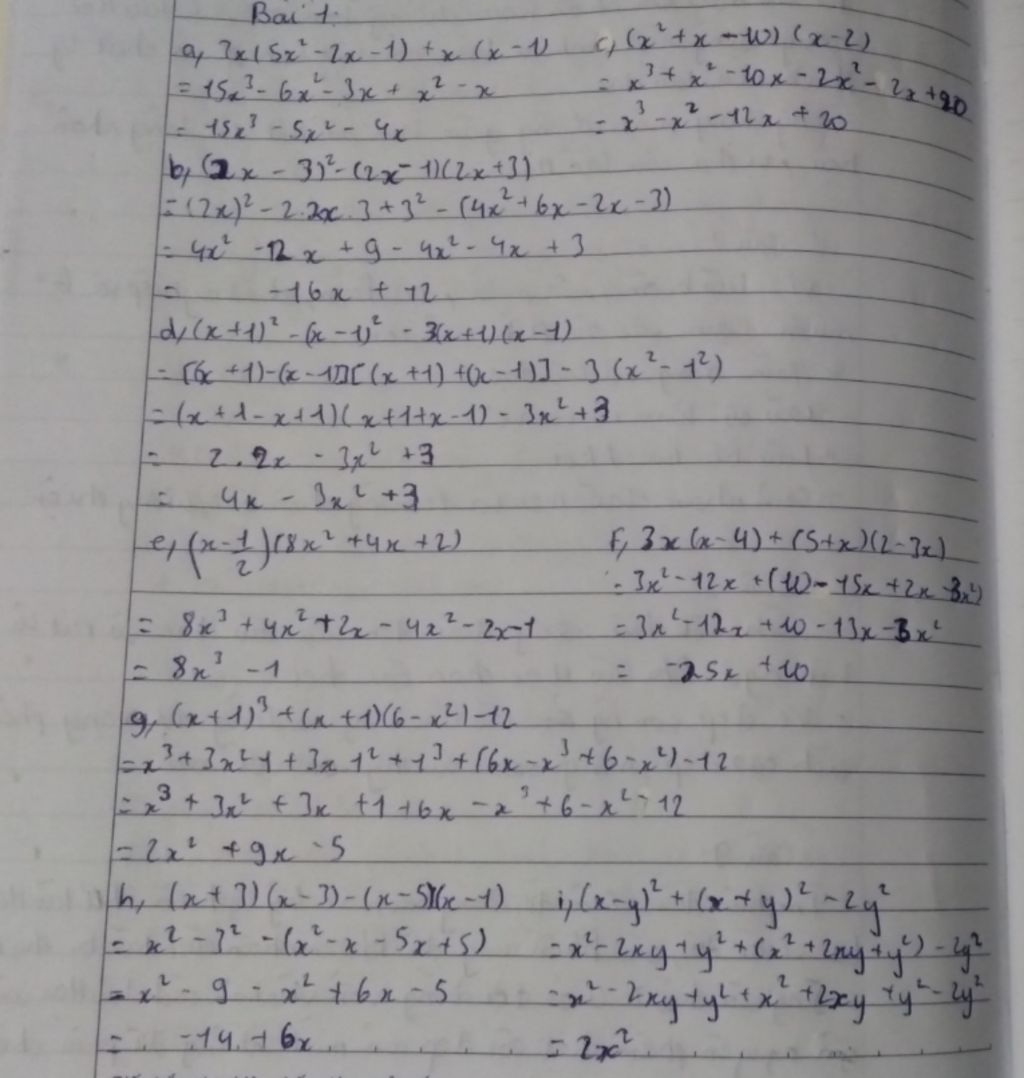 Bài 1:
a, 3x(5x² - 2x - 1) + x (x - 1)
= 15x³ - 6x² - 3x + x² - x
= 15x³ - 5x² - 4x
c, (x² + x - 10) (x - 2)
= x³ + x² - 10x - 2x² - 2x + 20
= x³ - x² - 12x + 20
b, (2x - 3)² - (2x - 1)(2x + 3)
= (2x)² - 2.2x.3 + 3² - (4x² + 6x - 2x - 3)
= 4x² - 12x + 9 - 4x² - 4x + 3
= -16x + 12
d, (x + 1)² - (x - 1)² - 3(x + 1)(x - 1)
= [(x + 1) - (x - 1)][(x + 1) + (x - 1)] - 3 (x² - 1²)
= (x + 1 - x + 1)(x + 1 + x - 1) - 3x² + 3
= 2.2x - 3x² + 3
= 4x - 3x² + 3
e, (x - 1/2)(8x² + 4x + 2)
= 8x³ + 4x² + 2x - 4x² - 2x - 1
= 8x³ - 1
f, 3x(x - 4) + (5 + x)(2 - 3x)
= 3x² - 12x + (10 - 15x + 2x - 3x²)
= 3x² - 12x + 10 - 13x - 3x²
= -25x + 10
g, (x + 1)³ + (x + 1)(6 - x²) - 12
= x³ + 3x² 1 + 3x 1² + 1³ + (6x - x³ + 6 - x²) - 12
= x³ + 3x² + 3x + 1 + 6x - x³ + 6 - x² - 12
= 2x² + 9x - 5
h, (x + 3)(x - 3) - (x - 5)(x - 1)
= x² - 3² - (x² - x - 5x + 5)
= x² - 9 - x² + 6x - 5
= -14 + 6x
i, (x - y)² + (x + y)² - 2y²
= x² - 2xy + y² + (x² + 2xy + y²) - 2y²
= x² - 2xy + y² + x² + 2xy + y² - 2y²
= 2x²